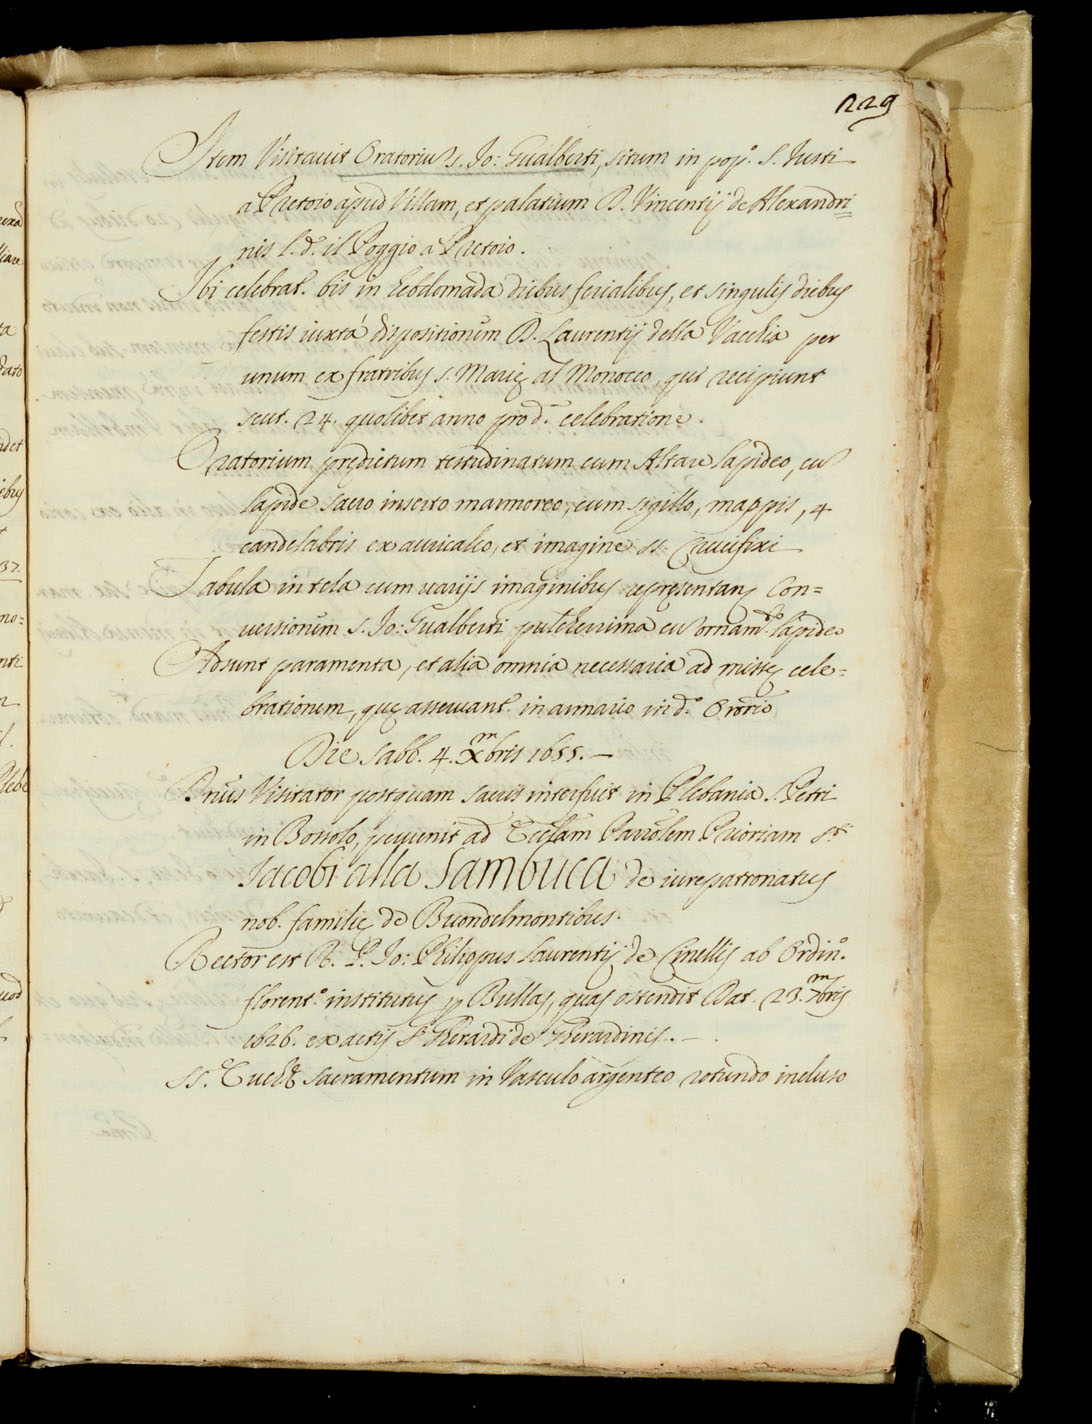 229
Item Visitauit Oratoriũ S. Jo: Gualberti, situm in pop.º S. Justi
a Petroio apud Villam, et palatium D. Vincentij de Alexandri=
nis l.d. il Poggio a Petroio.
Ibi celebrat. bis in hebdomada diebus ferialibus, et singulis diebus
festis iuxtà dispositionem D. Laurentij della Vacchia per
unum ex fratribus S. Marię al Morrocco, qui recipiunt
scut. 24. quolibet anno pro d. celebratione.
Oratorium prędictum testudinatum cum Altare lapideo, cũ
lapide sacro inserto marmoreo, cum sigillo, mappis, 4
candelabris ex auricalco, et imagine SS. Crucifixi
Tabula in tela cum varijs imaginibus representans Con=
uersionem S. Jo: Gualberti pulcherrima cũ ornam.to lapideo
Adsunt paramenta, et alia omnia necessaria ad missę cele=
brationem, quę asseruant. in armario in d.º Orório
Die Sabb. 4. Xmbris 1655. —
Dnus Visitator postquam sacris interfuit in Plebania S. Petri
in Bossolo, peruenit ad Ecclam Parrolem Prioriam S.ti
Jacobi alla Sambuca de iurepatronatus
nob. familię de Buondelmontibus.
Rector est R. P. Jo: Philippus Laurentij de Cinellis ab Ordin.º
florent.º institutus p Bullas, quas ostendit Dat. 23. 7mbris
1626. ex actis S. Gherardi de Gherardinis. —
SS. Euchæ sacramentum in Vasculo argenteo rotundo incluso